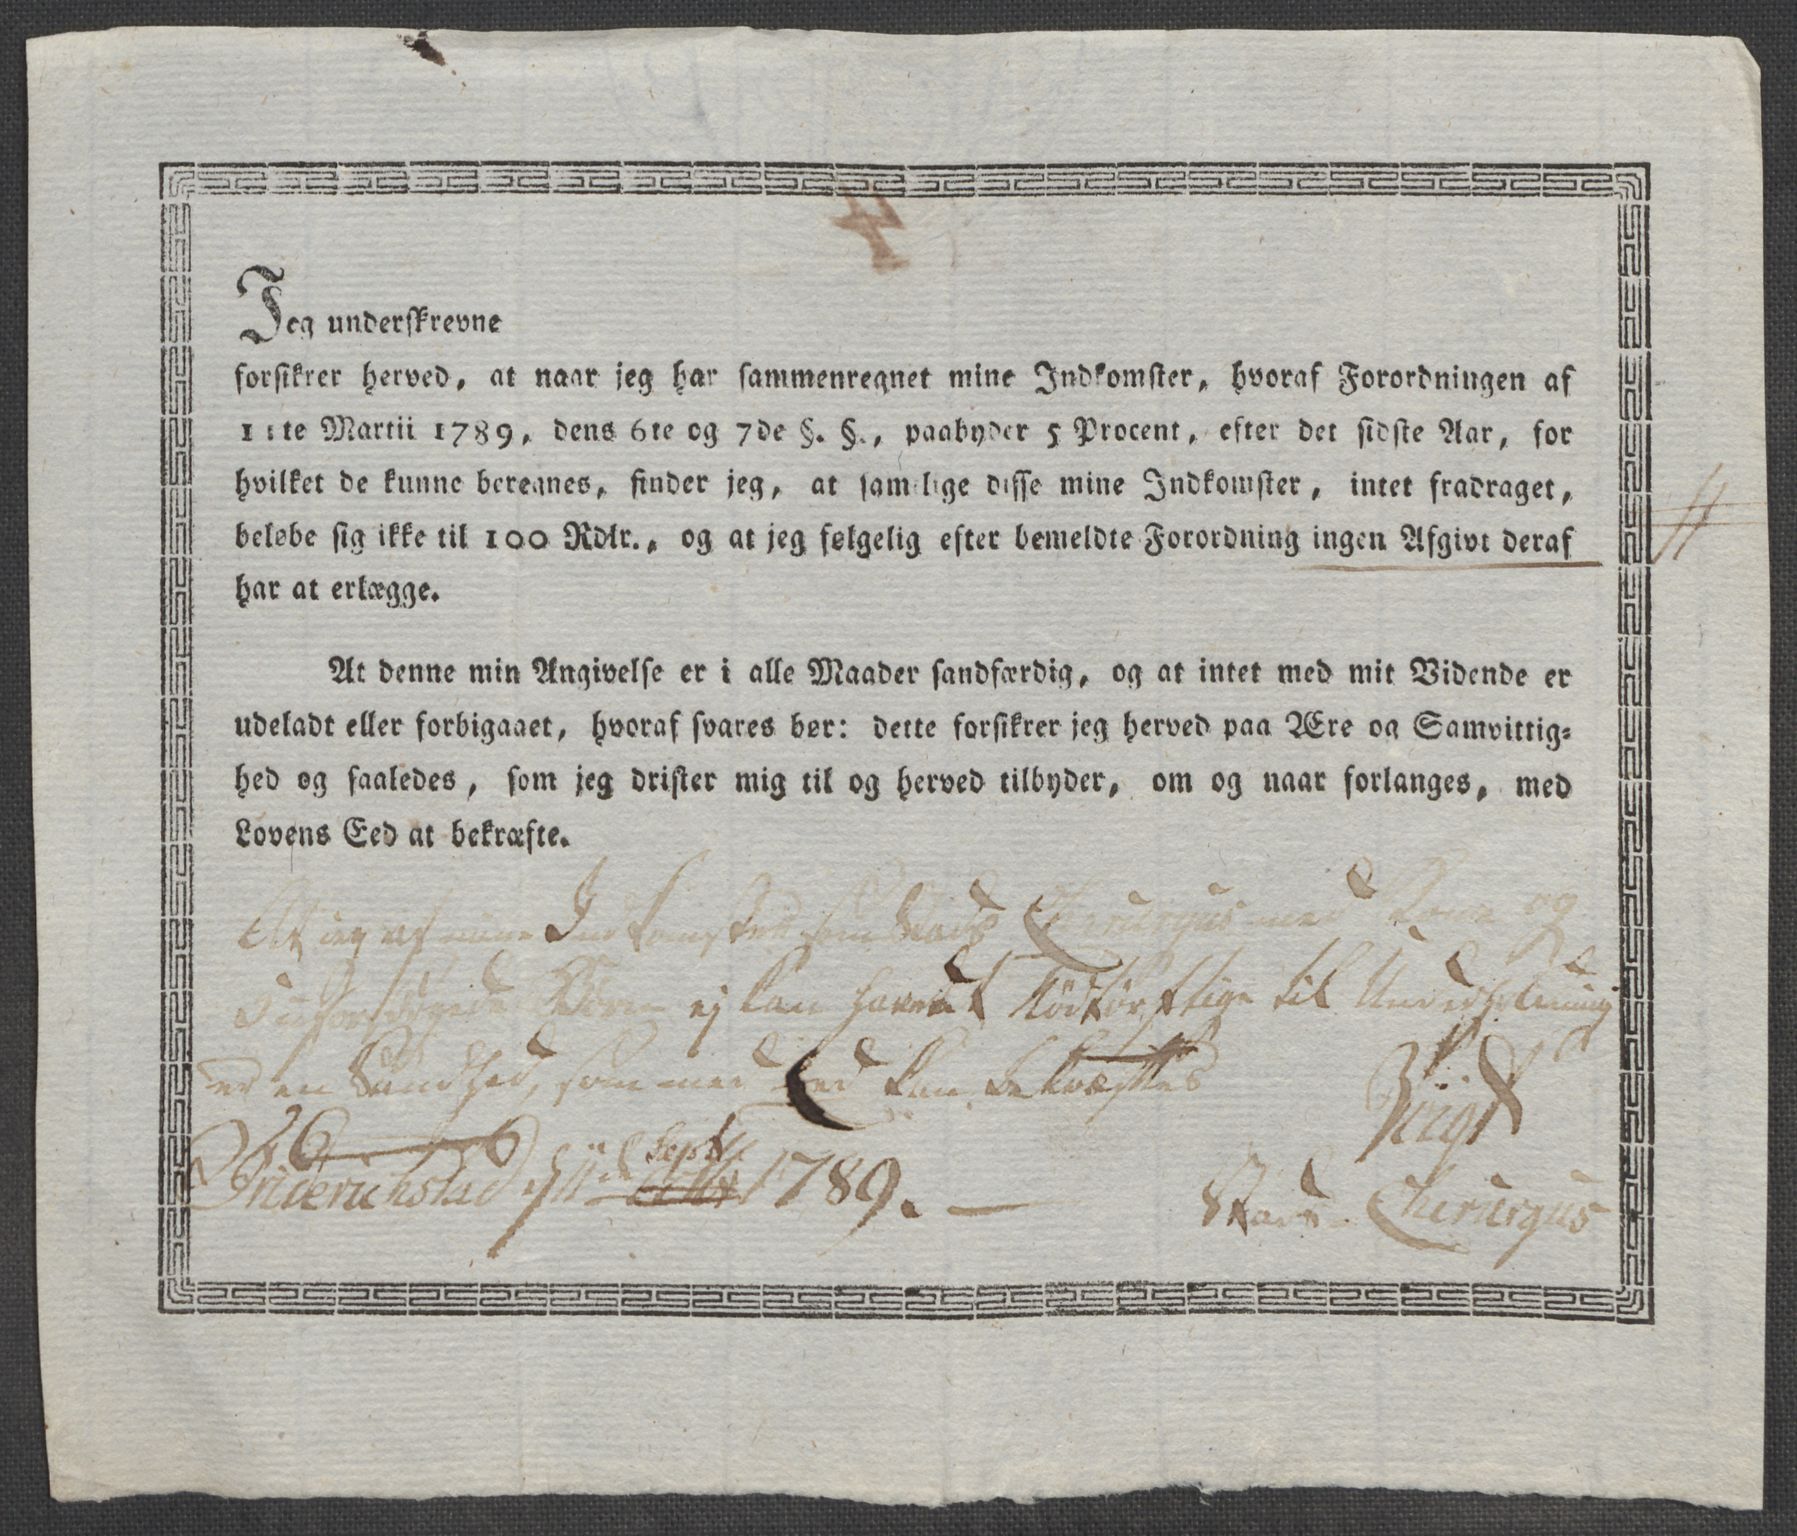 4
Jeg underskrevne
forsikrer herved, at naar jeg har sammenregnet mine Indkomster, hvoraf Forordningen af
11te Martii 1789, dens 6te og 7de §. §., paabyder 5 Procent, efter det sidste Aar, for
hvilket de kunne beregnes, finder jeg, at samtlige disse mine Indkomster, intet fradraget,
beløbe sig ikke til 100 Rdlr., og at jeg følgelig efter bemeldte Forordning ingen Afgivt deraf
har at erlægge.
At denne min Angivelse er i alle Maader sandfærdig, og at intet med mit Vidende er
udeladt eller forbigaaet, hvoraf svares bør: dette forsikrer jeg herved paa Ære og Samvittig-
hed og saaledes, som jeg drister mig til og herved tilbyder, om og naar forlanges, med
Lovens Eed at bekræfte.
At ieg af mine Indkomster som Stads Cherurgus med Kone og
Børn ej kan havet Nødtørftige til Underholdning
er en Sandhed, som med Eed kan bekræftes
Friderichstad 1789.
Stads Cherurgus